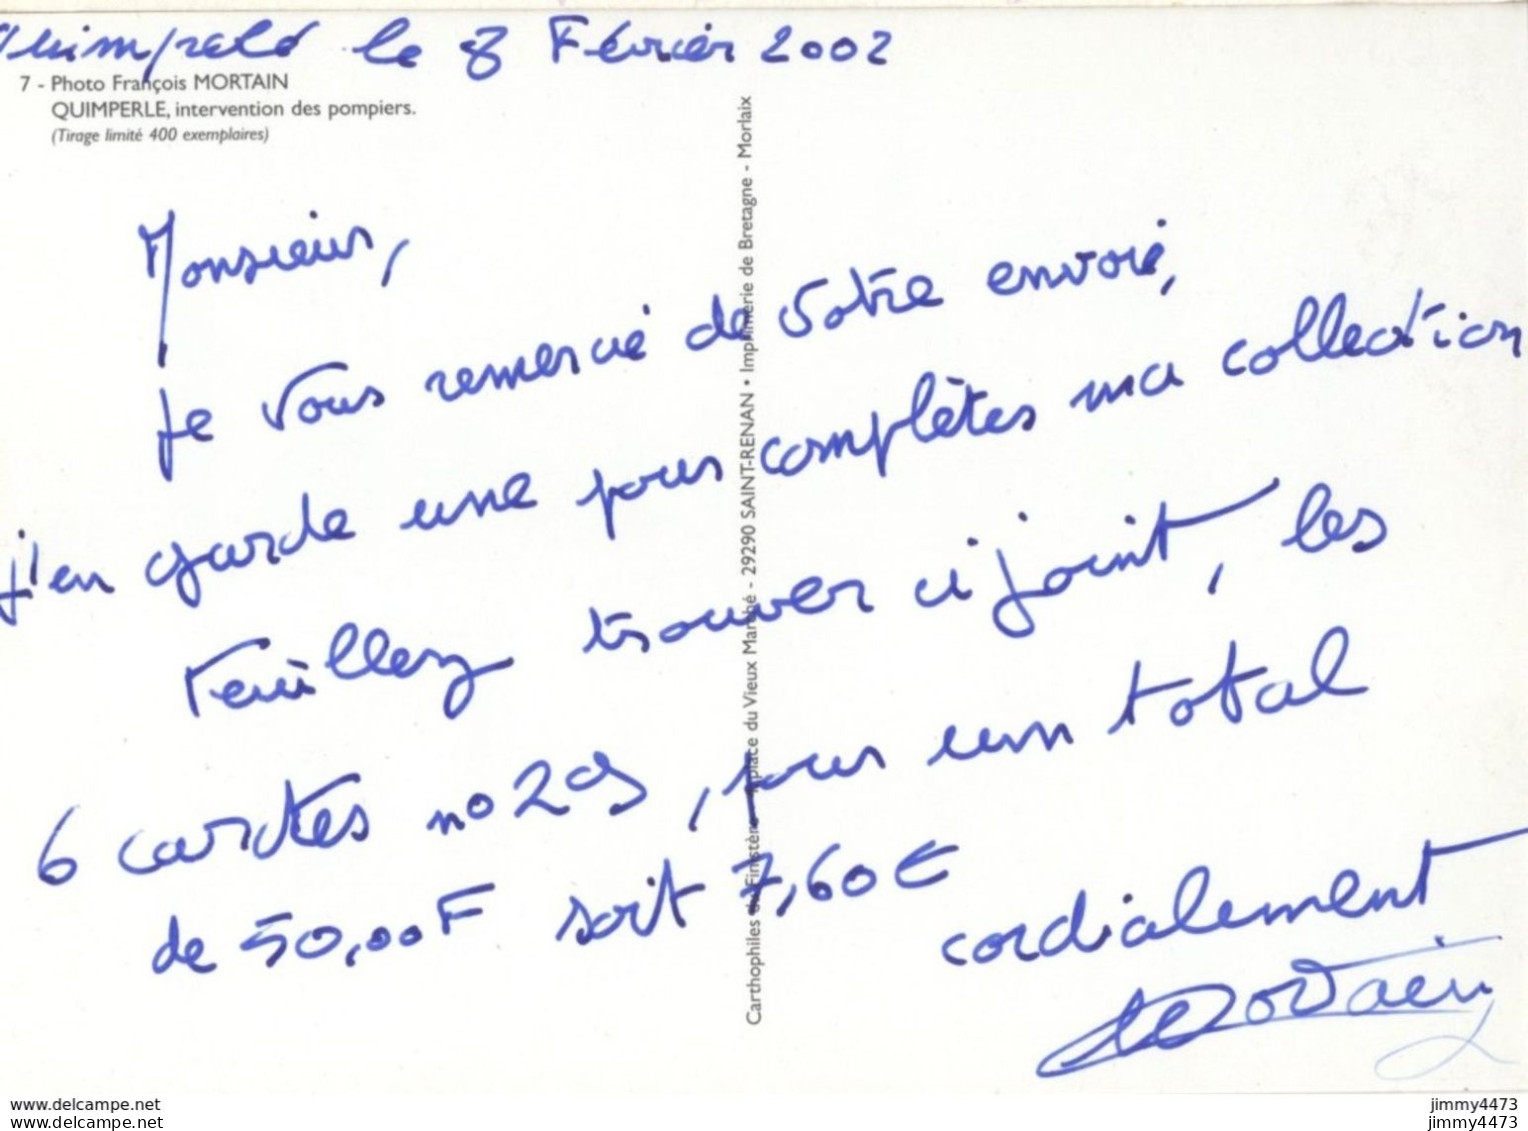 Quimperlé le 8 Février 2002
7 - Photo François MORTAIN
QUIMPERLE, intervention des pompiers.
(Tirage limité 400 exemplaires)
Monsieur,
je vous remercie de votre envoie,
j'en garde une pour complètes ma collection
Veuillez trouver ci joint, les
6 cartes no 29, pour un total
de 50,00F soit 7,60€
cordialement
Mortain
Carthophiles du Finistère - place du Vieux Marché - 29290 SAINT-RENAN • Imprimerie de Bretagne - Morlaix
www.delcampe.net
www.delcampe.net
jimmy4473
jimmy4473